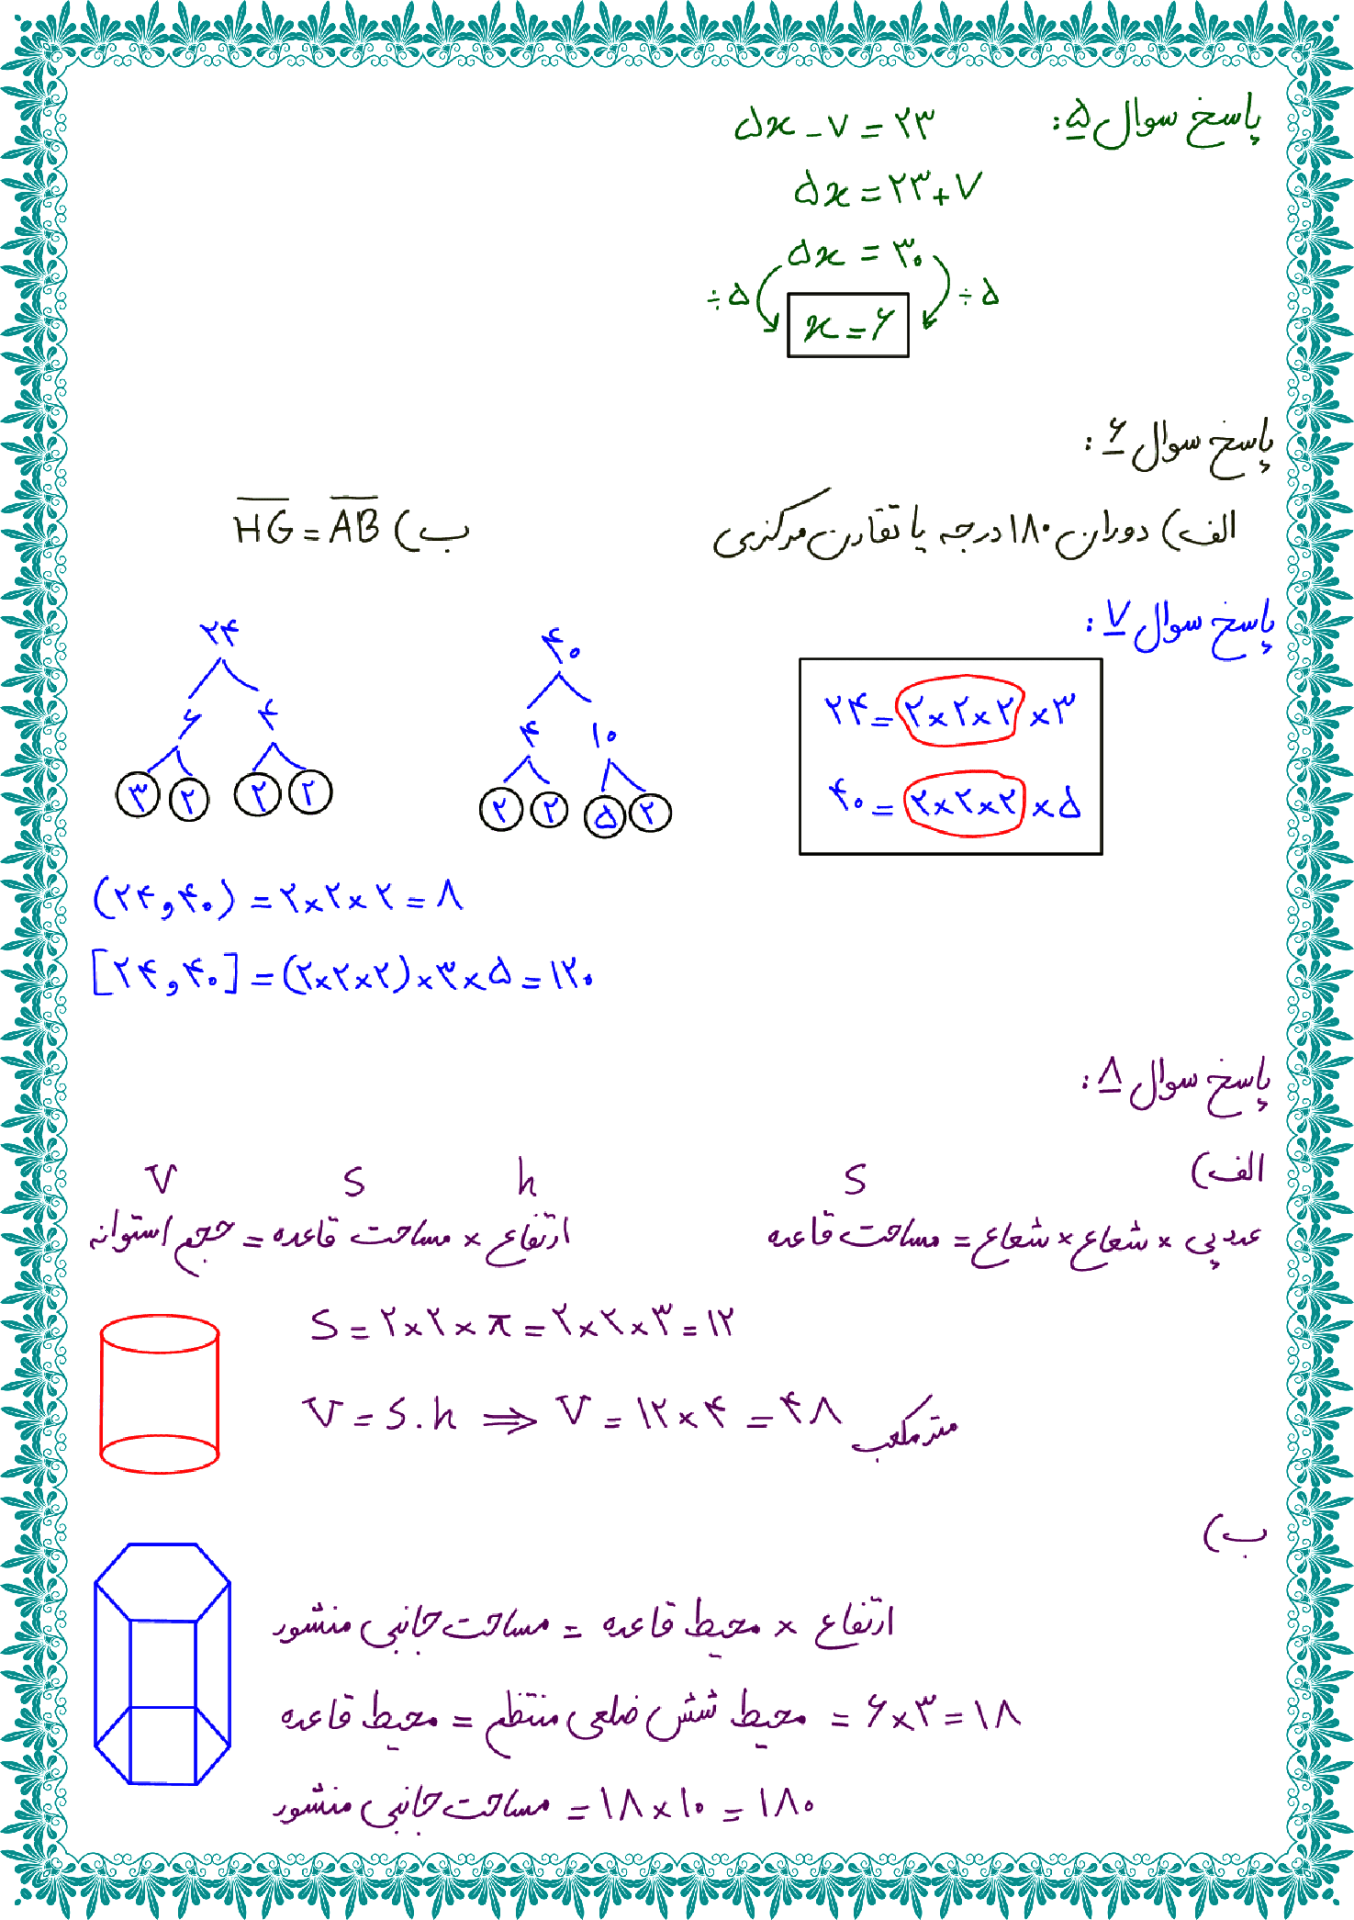 پاسخ سوال ۵:
۵x - ۷ = ۲۳
۵x = ۲۳ + ۷
۵x = ۳۰
÷۵ ÷۵
x = ۶
پاسخ سوال ۶:
الف) دوران ۱۸۰ درجه یا تقارن مرکزی
ب) HG = AB
پاسخ سوال ۷:
۲۴
۶ ۴
۳ ۲ ۲ ۲
۴۰
۴ ۱۰
۲ ۲ ۵ ۲
۲۴ = ۲×۲×۲ ×۳
۴۰ = ۲×۲×۲ ×۵
(۲۴ و ۴۰) = ۲×۲×۲ = ۸
[۲۴ و ۴۰] = (۲×۲×۲)×۳×۵ = ۱۲۰
پاسخ سوال ۸:
الف)
S
عدد پی × شعاع × شعاع = مساحت قاعده
V S h
ارتفاع × مساحت قاعده = حجم استوانه
S = ۲×۲×π = ۲×۲×۳ = ۱۲
V = S.h ⇒ V = ۱۲×۴ = ۴۸ متر مکعب
ب)
ارتفاع × محیط قاعده = مساحت جانبی منشور
محیط قاعده = محیط شش ضلعی منتظم = ۶×۳ = ۱۸
مساحت جانبی منشور = ۱۸×۱۰ = ۱۸۰